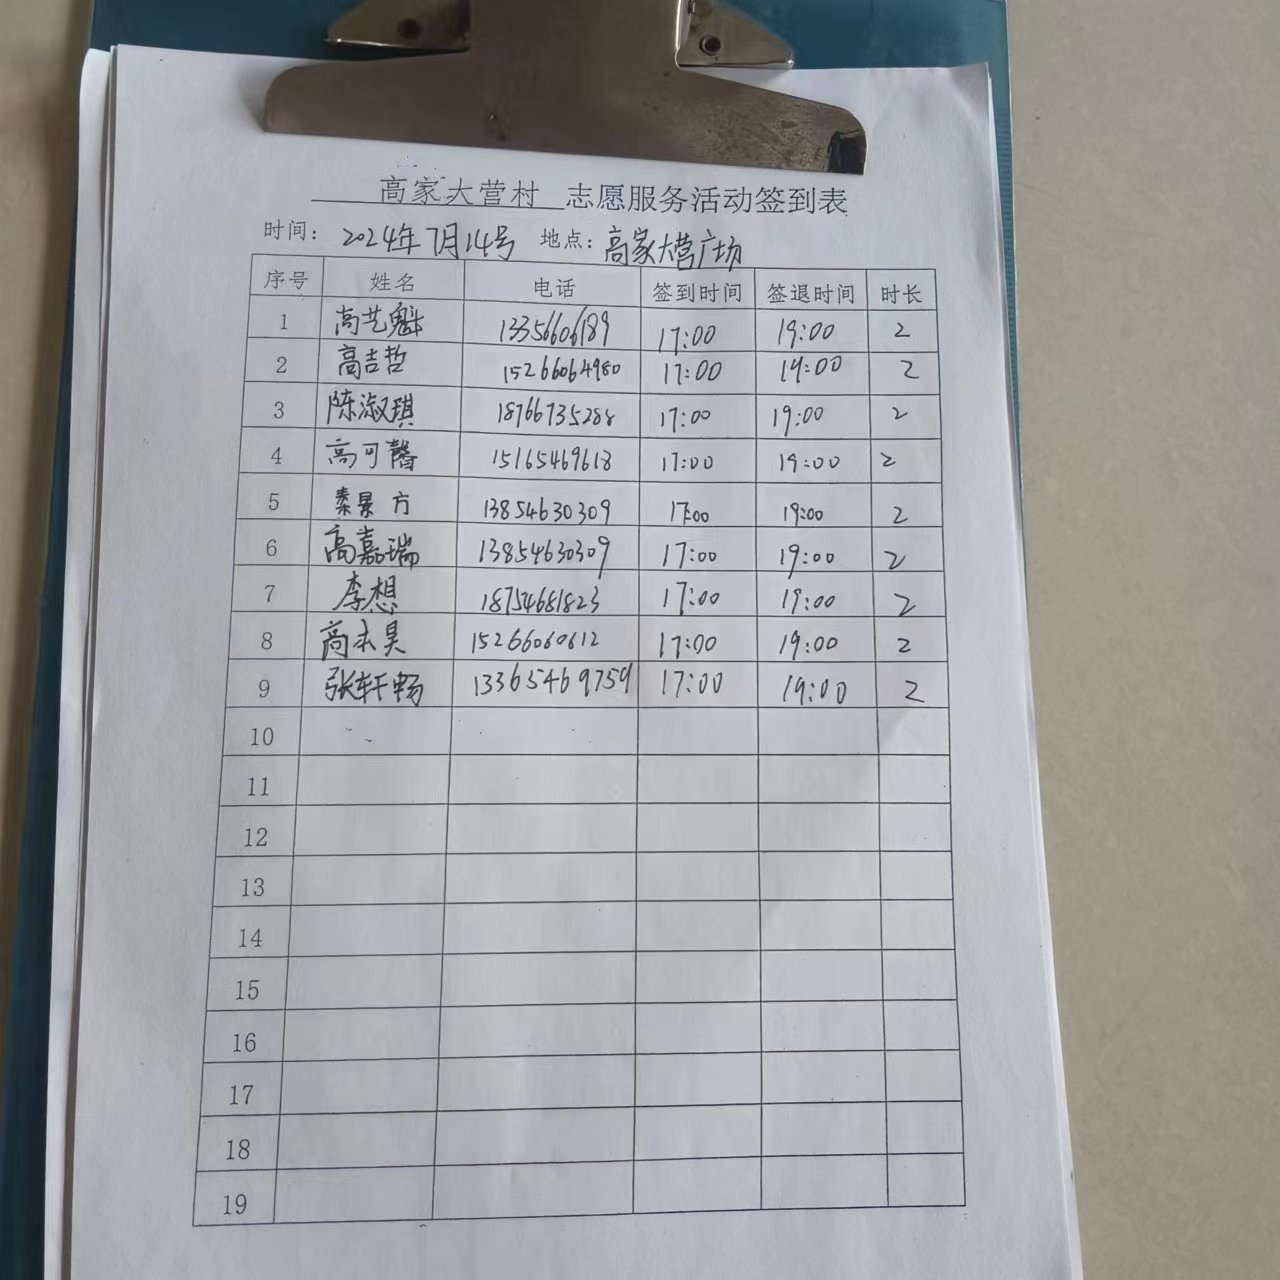 高家大营村 志愿服务活动签到表
时间: 2024年7月14号 地点: 高家大营广场
序号 姓名 电话 签到时间 签退时间 时长
1 高艺魁 13356606189 17:00 19:00 2
2 高吉哲 15266064980 17:00 19:00 2
3 陈淑琪 18766735288 17:00 19:00 2
4 高可馨 15165469618 17:00 19:00 2
5 秦景方 13854630309 17:00 19:00 2
6 高嘉瑞 13854630309 17:00 19:00 2
7 李想 18754681823 17:00 19:00 2
8 高本昊 15266060612 17:00 19:00 2
9 张轩畅 13365469759 17:00 19:00 2
10
11
12
13
14
15
16
17
18
19